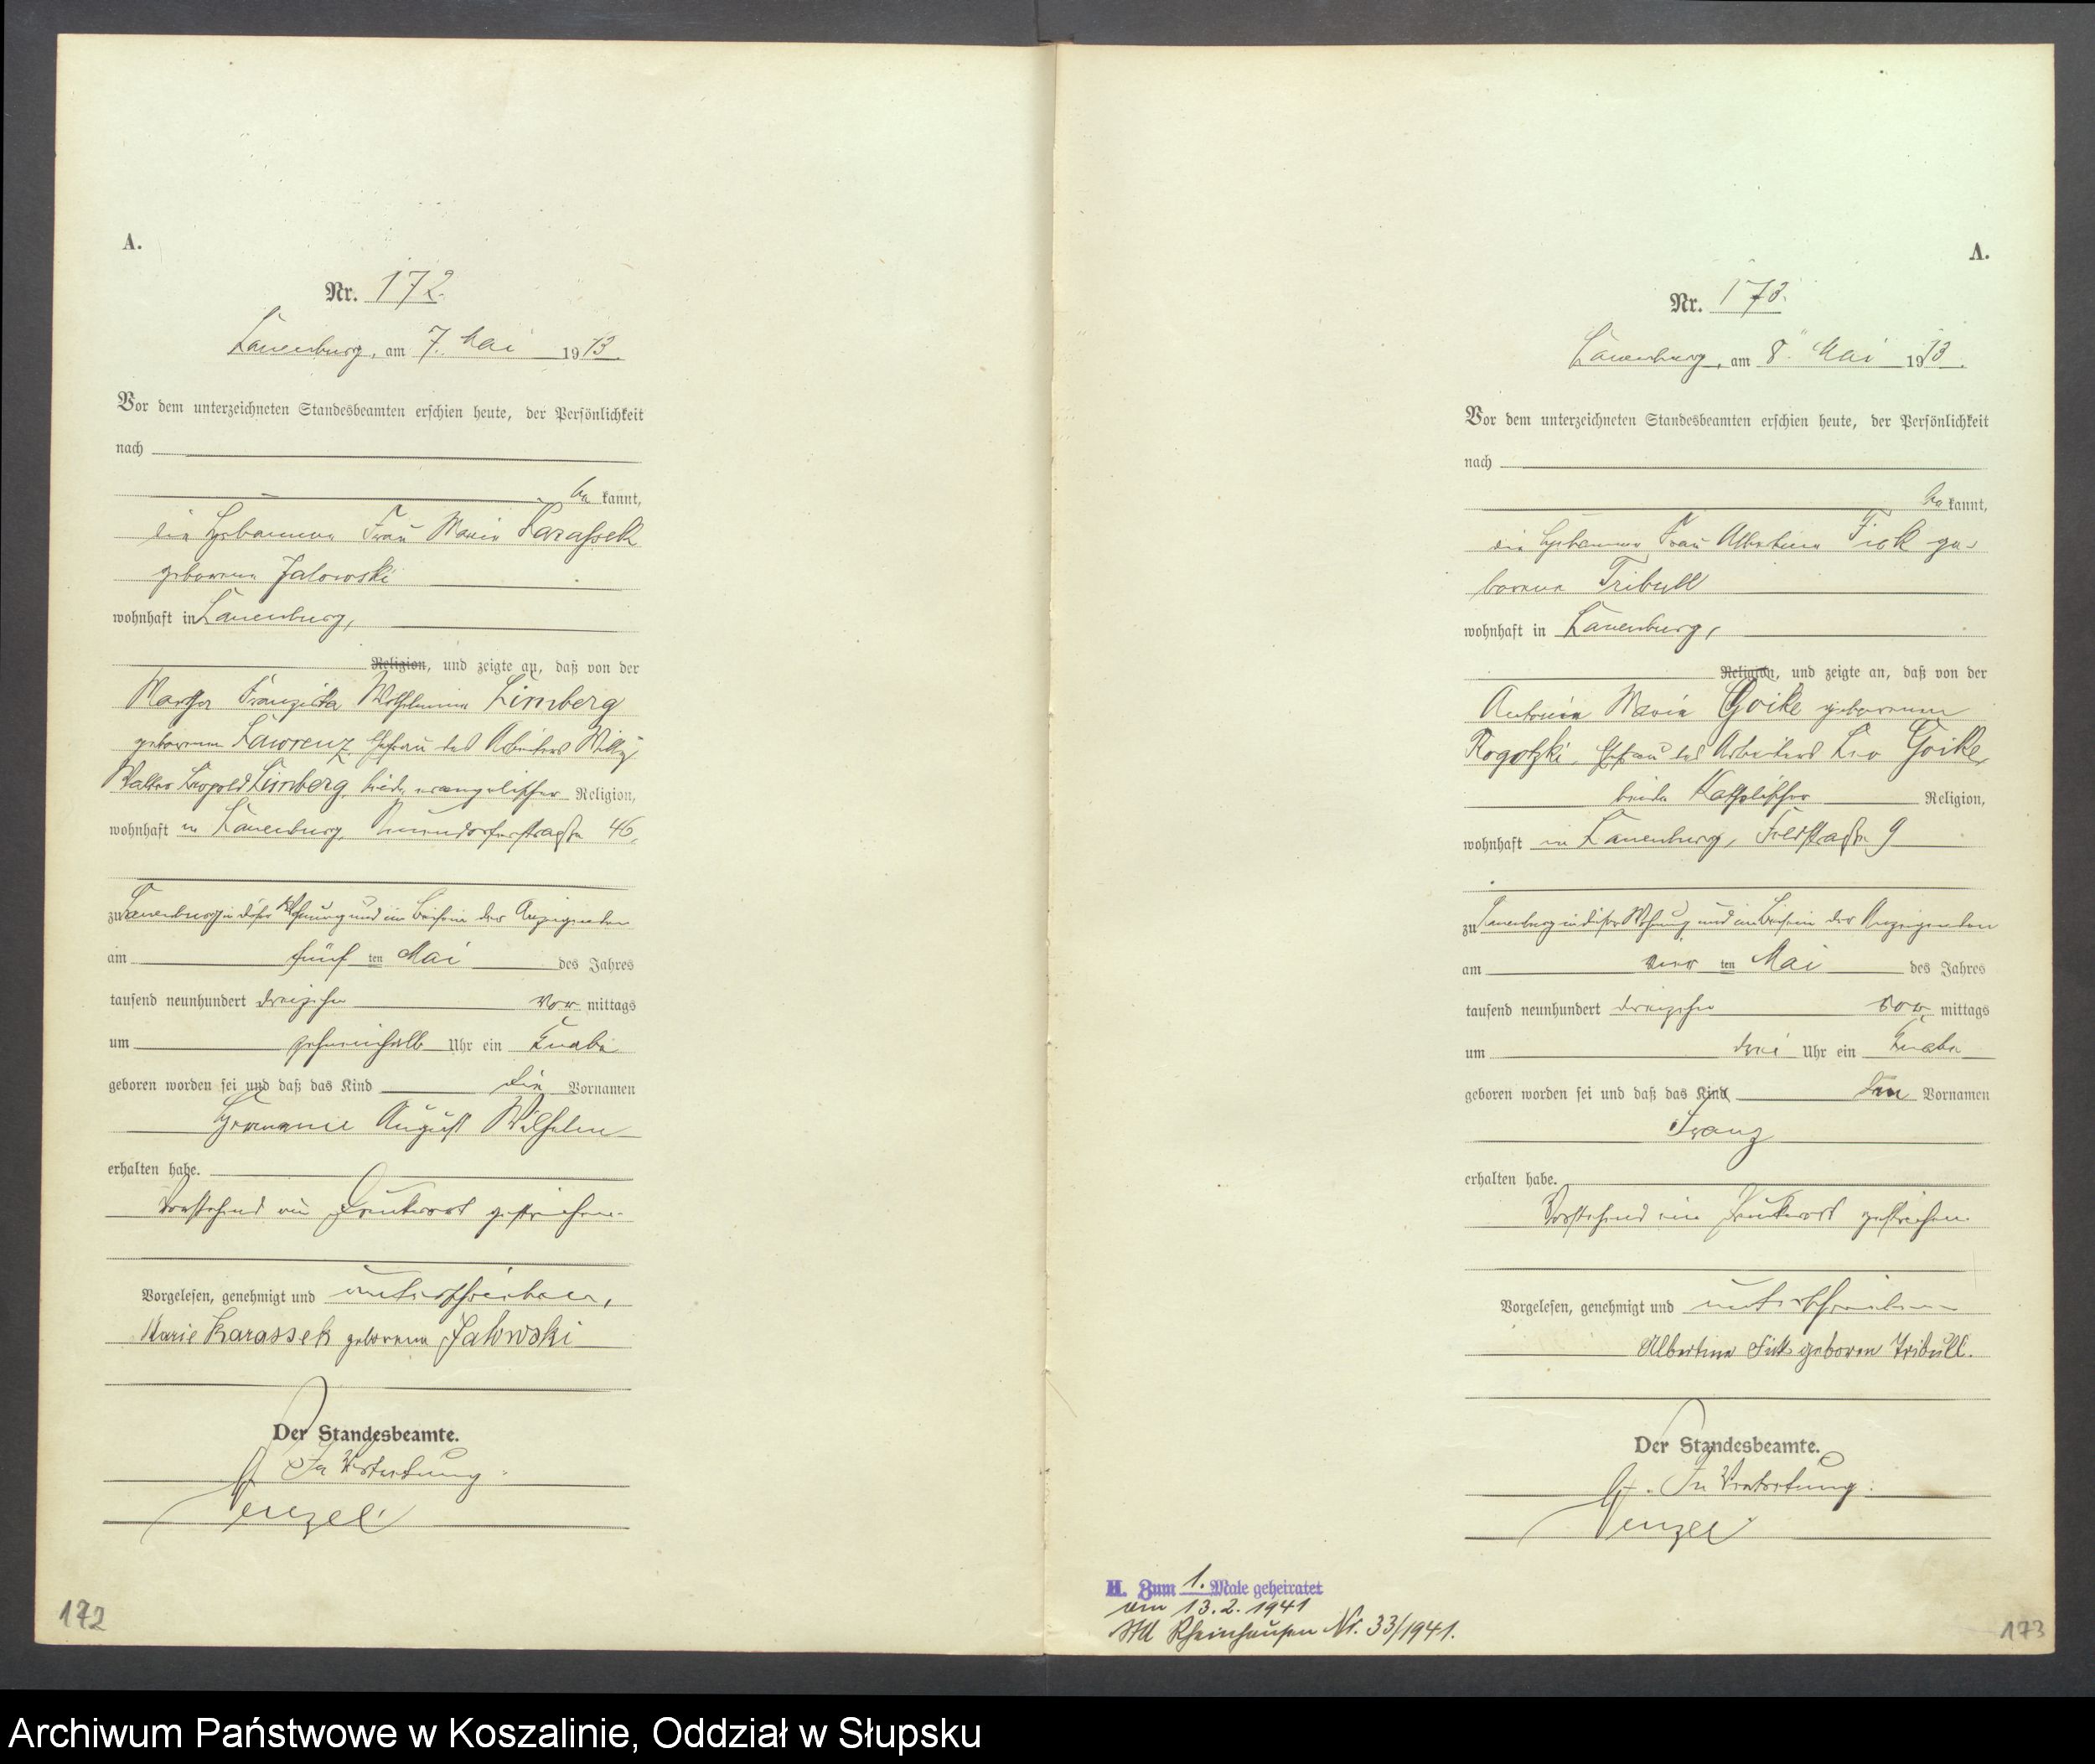 A.
Nr. 172.
Lauenburg, am 7. Mai 1913.
Vor dem unterzeichneten Standesbeamten erschien heute, der Persönlichkeit
nach
be kannt,
die Hebamme Frau Marie Karassek
geborene Jalowski
wohnhaft in Lauenburg,
Religion, und zeigte an, daß von der
Martha Franziska Wilhelmine Limberg
geborenen Lawrenz, Ehefrau des Arbeiters Willy
Walter Leopold Limberg, beide evangelischer Religion,
wohnhaft in Lauenburg, Neuendorferstraße 46,
zu Lauenburg in dieser Wohnung und im Beisein der Anzeigenden
am fünf ten Mai des Jahres
tausend neunhundert dreizehn vor mittags
um zehneinhalb Uhr ein Knabe
geboren worden sei und daß das Kind die Vornamen
Hermann August Wilhelm
erhalten habe.
Vorstehend ein Druckwort gestrichen.
Vorgelesen, genehmigt und unterschrieben,
Marie Karassek geborene Jalowski
Der Standesbeamte.
In Vertretung:
172
A.
Nr. 173.
Lauenburg, am 8. Mai 1913.
Vor dem unterzeichneten Standesbeamten erschien heute, der Persönlichkeit
nach
be kannt,
die Hebamme Frau Albertine Fick ge-
borene Tribull
wohnhaft in Lauenburg,
Religion, und zeigte an, daß von der
Antonie Marie Goike geborenen
Rogotzki, Ehefrau des Arbeiters Leo Goike,
beide Katholischer Religion,
wohnhaft in Lauenburg, Feldstraße 9
zu Lauenburg in dieser Wohnung und im Beisein der Anzeigenden
am vier ten Mai des Jahres
tausend neunhundert dreizehn vor mittags
um drei Uhr ein Knabe
geboren worden sei und daß das Kind den Vornamen
Franz
erhalten habe.
Vorstehend ein Druckwort gestrichen.
Vorgelesen, genehmigt und unterschrieben
Albertine Fick geboren Tribull.
Der Standesbeamte.
In Vertretung:
H. Zum 1. Male geheiratet
am 13.2.1941
StA Rheinhausen Nr. 33/1941.
173
Archiwum Państwowe w Koszalinie, Oddział w Słupsku